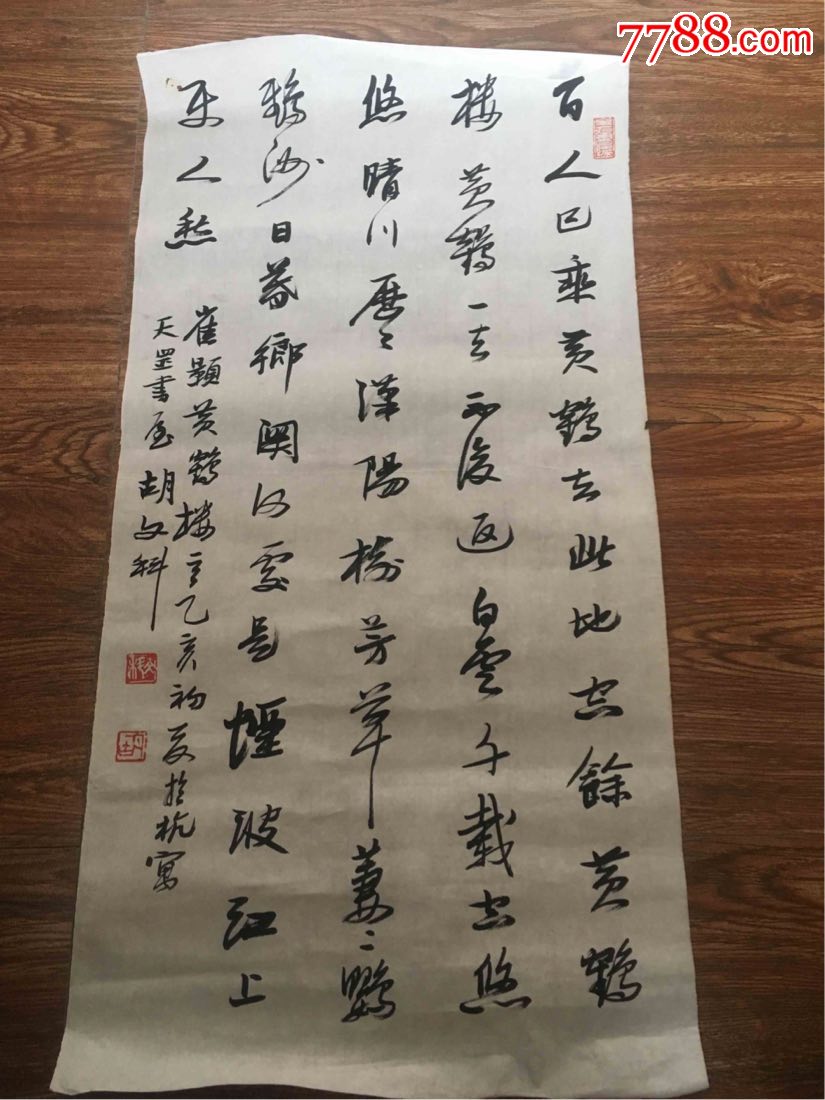 7788.com
百人已乘黄鶴去此地空餘黄鶴
楼黄鶴一去不復返白雲千載空悠
悠晴川歷々漢陽樹芳草萋々鸚
鵡洲日暮鄉關何處是煙波江上
使人愁
崔顥黄鶴楼乙亥初夏於杭寓
天罡書屋胡文科